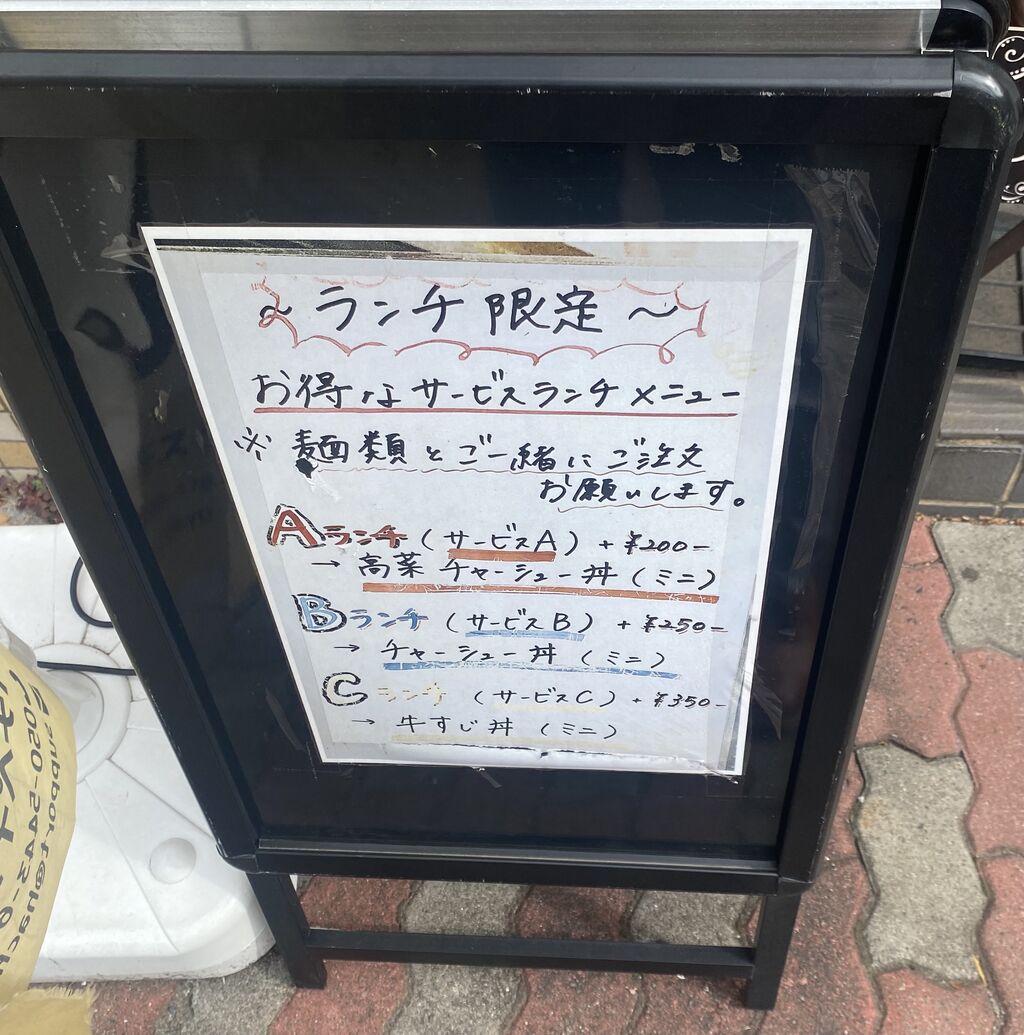 ～ランチ限定～
お得なサービスランチメニュー
※麺類とご一緒にご注文
お願いします。
Aランチ（サービスA）+¥200-
→高菜チャーシュー丼（ミニ）
Bランチ（サービスB）+¥250-
→チャーシュー丼（ミニ）
Cランチ（サービスC）+¥350-
→牛すじ丼（ミニ）